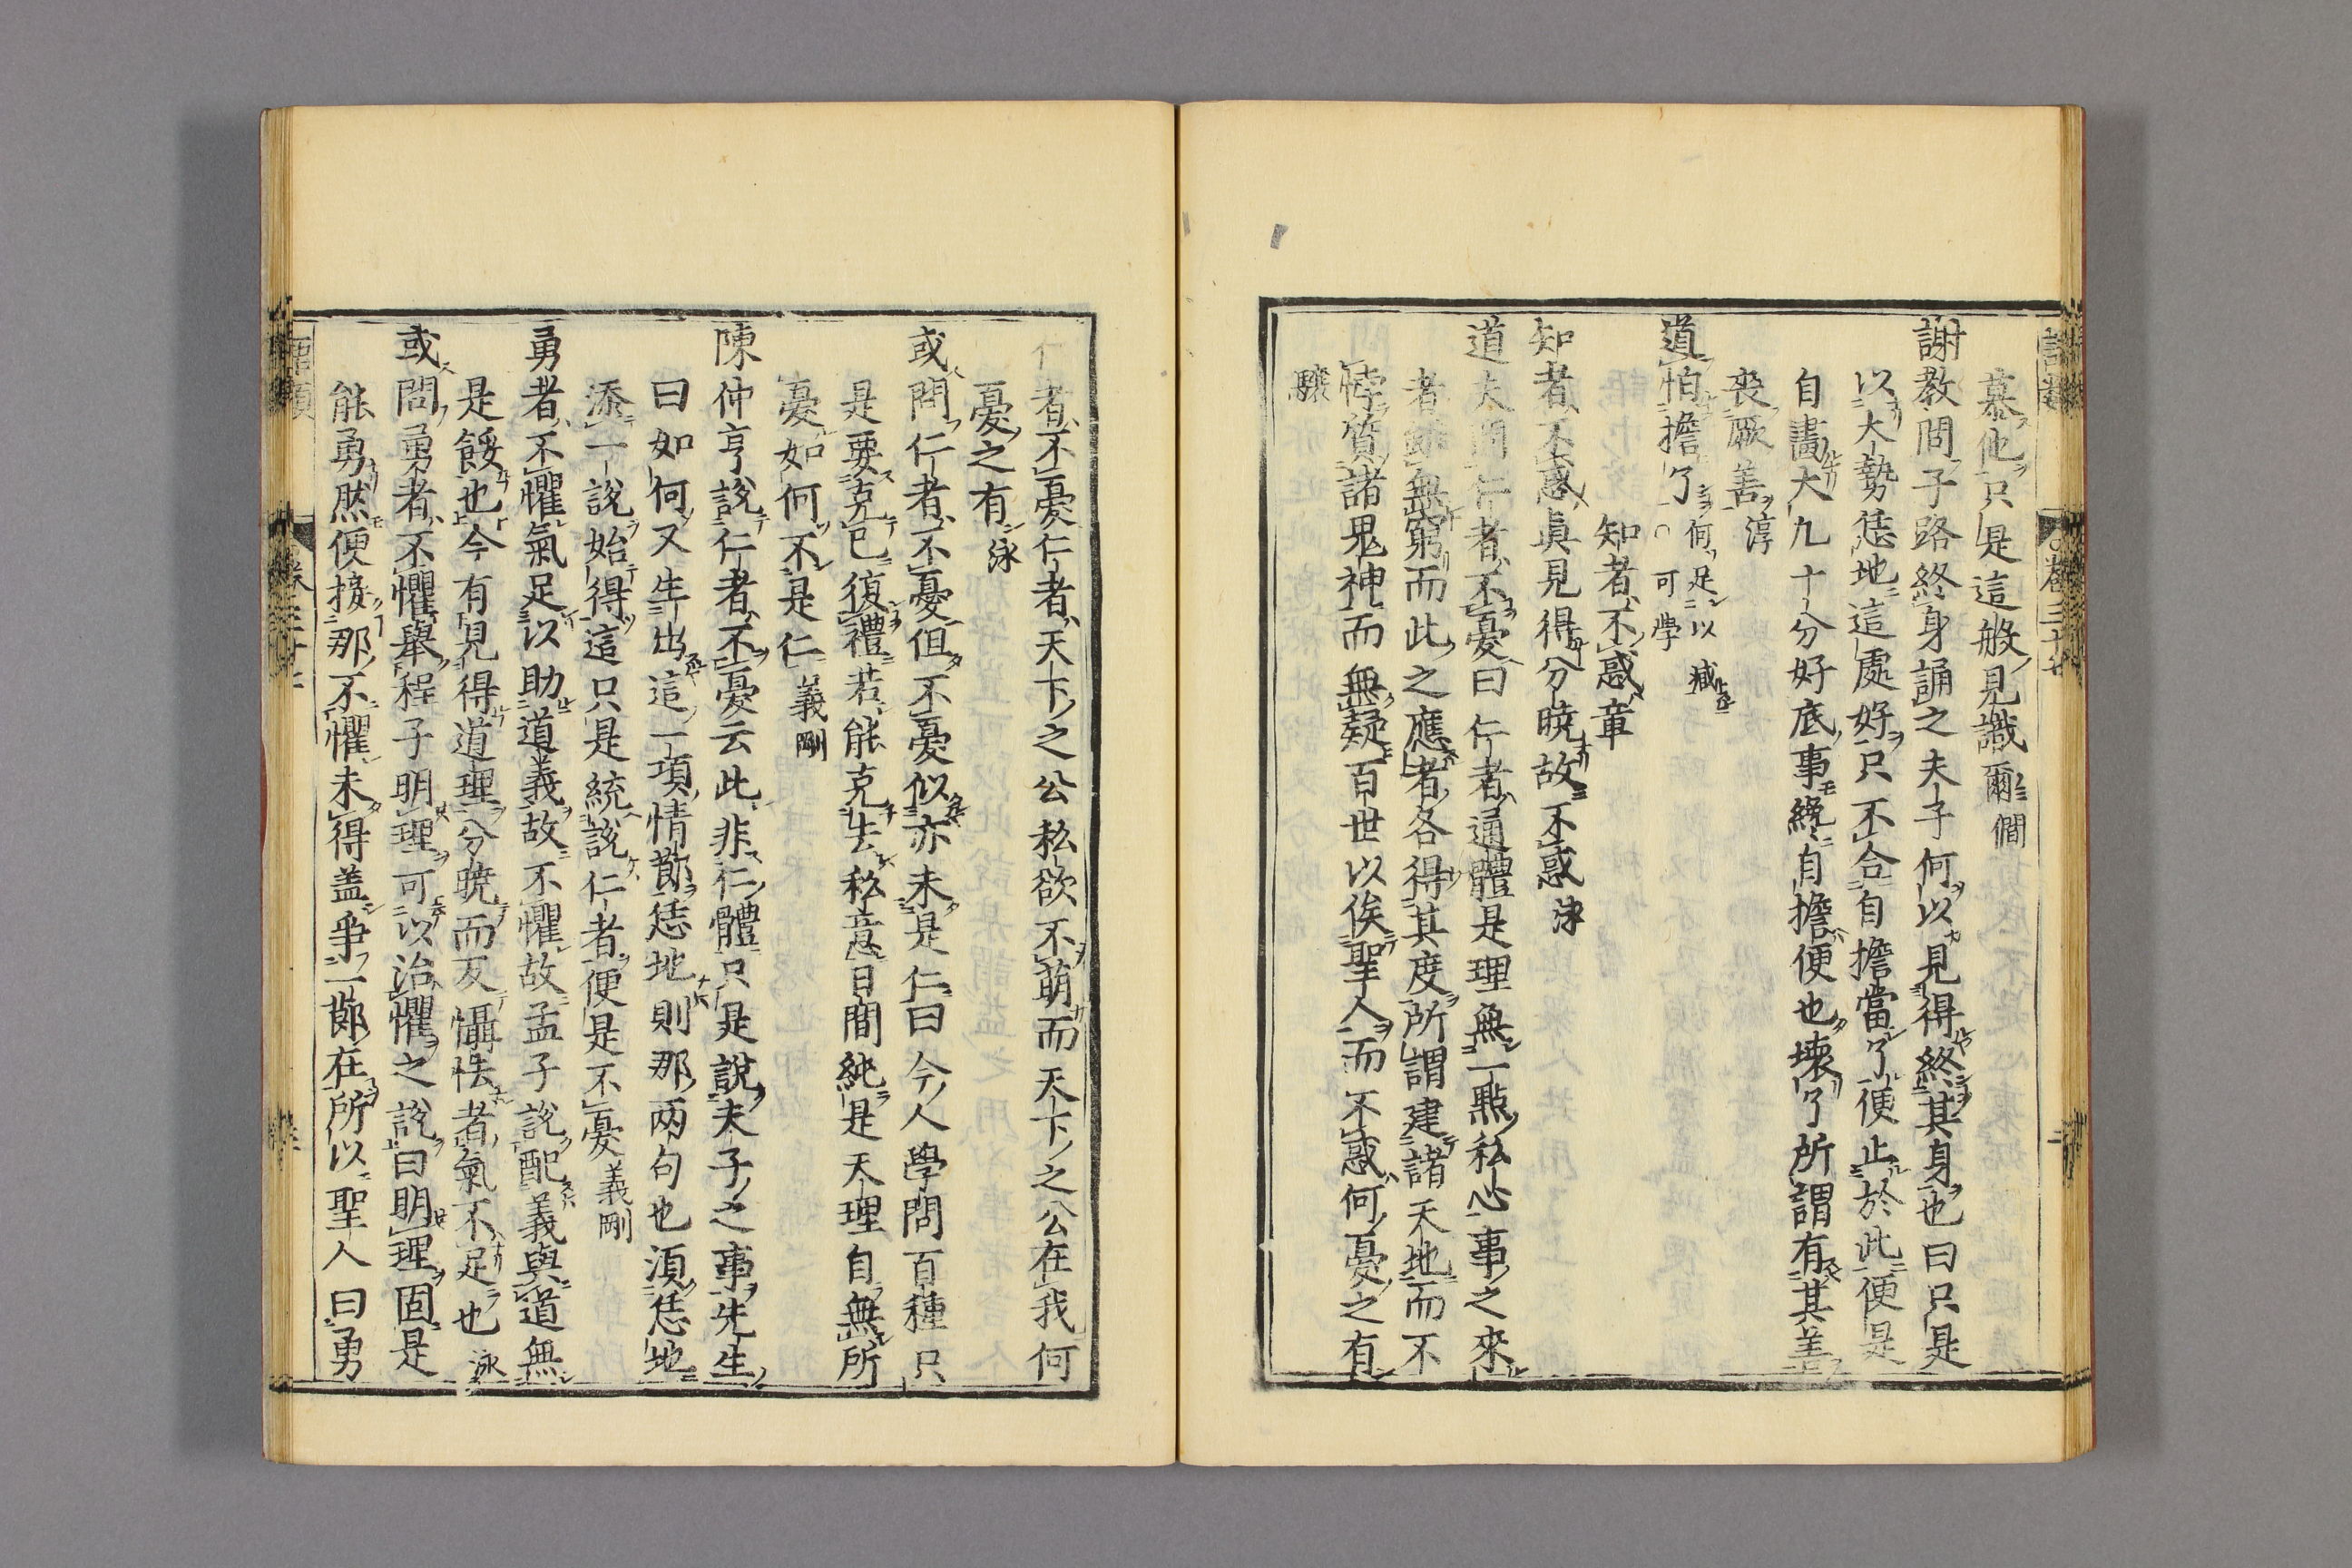 慕他只是這般見識爾僩
謝教問子路終身誦之夫子何以見得終其身也曰只是
以大勢恁地這處好只不合自擔當了便止於此便是
自畫大凡十分好底事纔自擔便也壞了所謂有其善
喪厥善淳
道怕擔了何足以臧可學
知者不惑章
知者不惑眞見得分曉故不惑泳
道夫問仁者不憂曰仁者通體是理無一點私心事之來
者雖無窮而此之應者各得其度所謂建諸天地而不
悖質諸鬼神而無疑百世以俟聖人而不惑何憂之有
驤
仁者不憂仁者天下之公私欲不萌而天下之公在我何
憂之有泳
或問仁者不憂但不憂似亦未是仁曰今人學問百種只
是要克己復禮若能克去私意日間純是天理自無所
憂如何不是仁義剛
陳仲亨說仁者不憂云此非仁體只是說夫子之事先生
曰如何又生出這一項情節恁地則那兩句也須恁地
添一說始得這只是統說仁者便是不憂義剛
勇者不懼氣足以助道義故不懼故孟子說配義與道無
是餒也今有見得道理分曉而反懾怯者氣不足也泳
或問勇者不懼舉程子明理可以治懼之說曰明理固是
能勇然便接那不懼未得蓋爭一節在所以聖人曰勇
語類
卷三十七